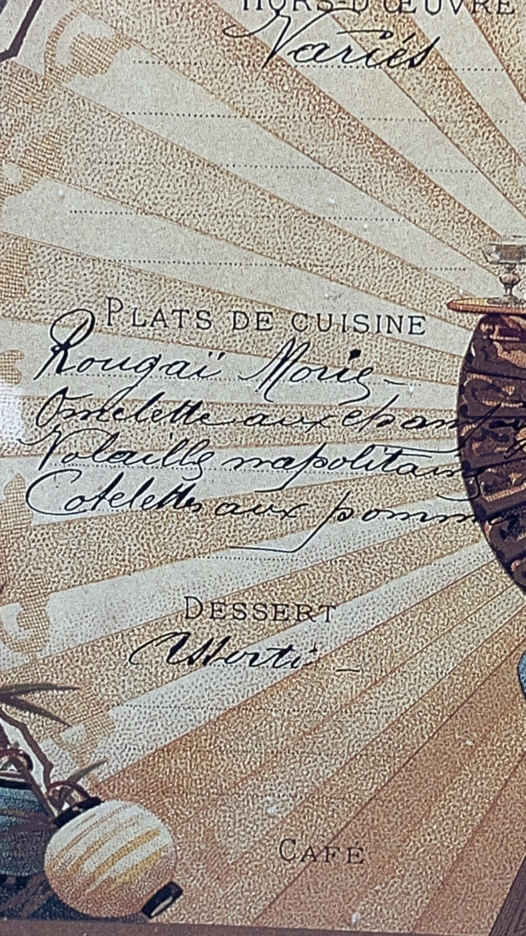 HORS-D'ŒUVRE
Variés
PLATS DE CUISINE
Rougaï Morie
Omelette aux champ
Volaille napolitain
Cotelettes aux pomme
DESSERT
Assorti
CAFE